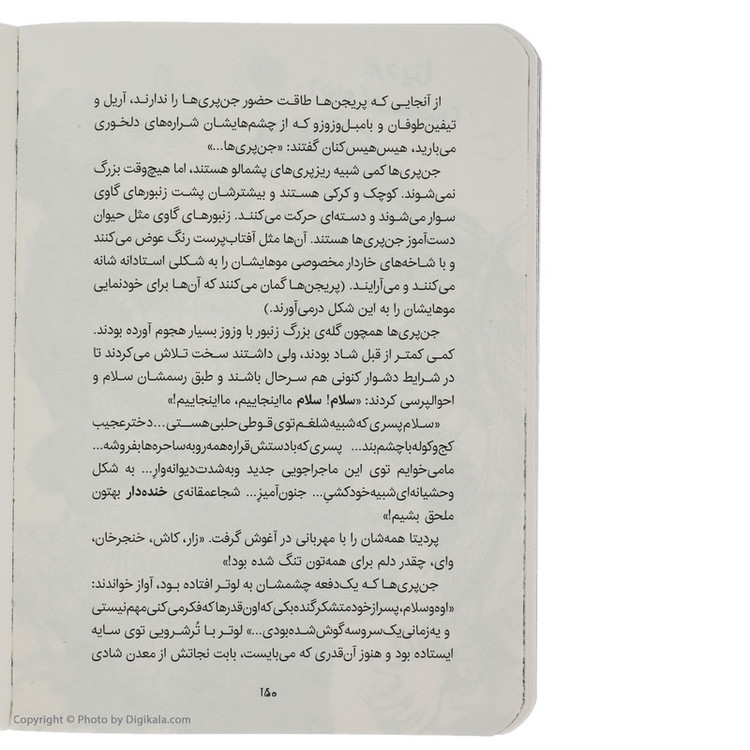 از آنجایی که پریجن‌ها طاقت حضور جن‌پری‌ها را ندارند، آریل و
تیفین‌طوفان و بامبل‌وزوزو که از چشم‌هایشان شراره‌های دلخوری
می‌بارید، هیس‌هیس‌کنان گفتند: «جن‌پری‌ها...»
جن‌پری‌ها کمی شبیه ریزپری‌های پشمالو هستند، اما هیچ‌وقت بزرگ
نمی‌شوند. کوچک و کرکی هستند و بیشترشان پشت زنبورهای گاوی
سوار می‌شوند و دسته‌ای حرکت می‌کنند. زنبورهای گاوی مثل حیوان
دست‌آموز جن‌پری‌ها هستند. آن‌ها مثل آفتاب‌پرست رنگ عوض می‌کنند
و با شاخه‌های خاردار مخصوصی موهایشان را به شکلی استادانه شانه
می‌کنند و می‌آرایند. (پریجن‌ها گمان می‌کنند که آن‌ها برای خودنمایی
موهایشان را به این شکل درمی‌آورند.)
جن‌پری‌ها همچون گله‌ی بزرگ زنبور با وزوز بسیار هجوم آورده بودند.
کمی کمتر از قبل شاد بودند، ولی داشتند سخت تلاش می‌کردند تا
در شرایط دشوار کنونی هم سرحال باشند و طبق رسمشان سلام و
احوالپرسی کردند: «سلام! سلام مااینجاییم، مااینجاییم!»
«سلام پسری که شبیه شلغم توی قوطی حلبی هستی... دختر عجیب
کج‌وکوله باچشم‌بند... پسری که بادستش قراره همه رو به ساحره‌ها بفروشه...
مامی‌خوایم توی این ماجراجویی جدید و‌به‌شدت‌دیوانه‌وار... به شکل
وحشیانه‌ای شبیه خودکشی... جنون‌آمیز... شجاع‌مقانه‌ی خنده‌دار بهتون
ملحق بشیم!»
پردیتا همه‌شان را با مهربانی در آغوش گرفت. «زار، کاش، خنجرخان،
وای، چقدر دلم برای همه‌تون تنگ شده بود!»
جن‌پری‌ها که یک‌دفعه چشمشان به لوتر افتاده بود، آواز خواندند:
«اوه و سلام، پسر از خودمتشکر گنده‌بکی که اون قدرها که فکر می‌کنی مهم نیستی
و یه زمانی یک سر و سه گوش شده بودی...» لوتر با تُرشرویی توی سایه
ایستاده بود و هنوز آن‌قدری که می‌بایست، بابت نجاتش از معدن شادی
۱۵۰
Copyright © Photo by Digikala.com